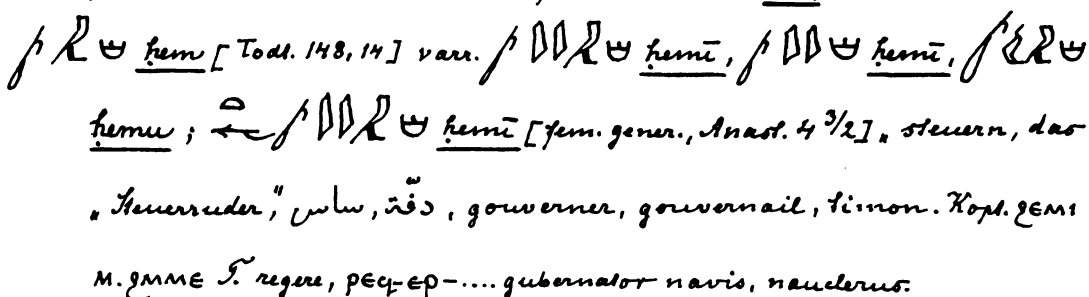 ḥem [Todt. 148, 14] varr. ḥemī, ḥemī,
ḥemu; ḥemī [fem. gener., Anast. 4 3/2] „steuern, das
„Steuerruder,“ ساس, دفّة, gouverner, gouvernail, timon. Kopt. ϩⲉⲙⲓ
M. ϩⲙⲙⲉ T. regere, ⲣⲉϥ-ⲉⲣ-.... gubernator navis, nauclerus.